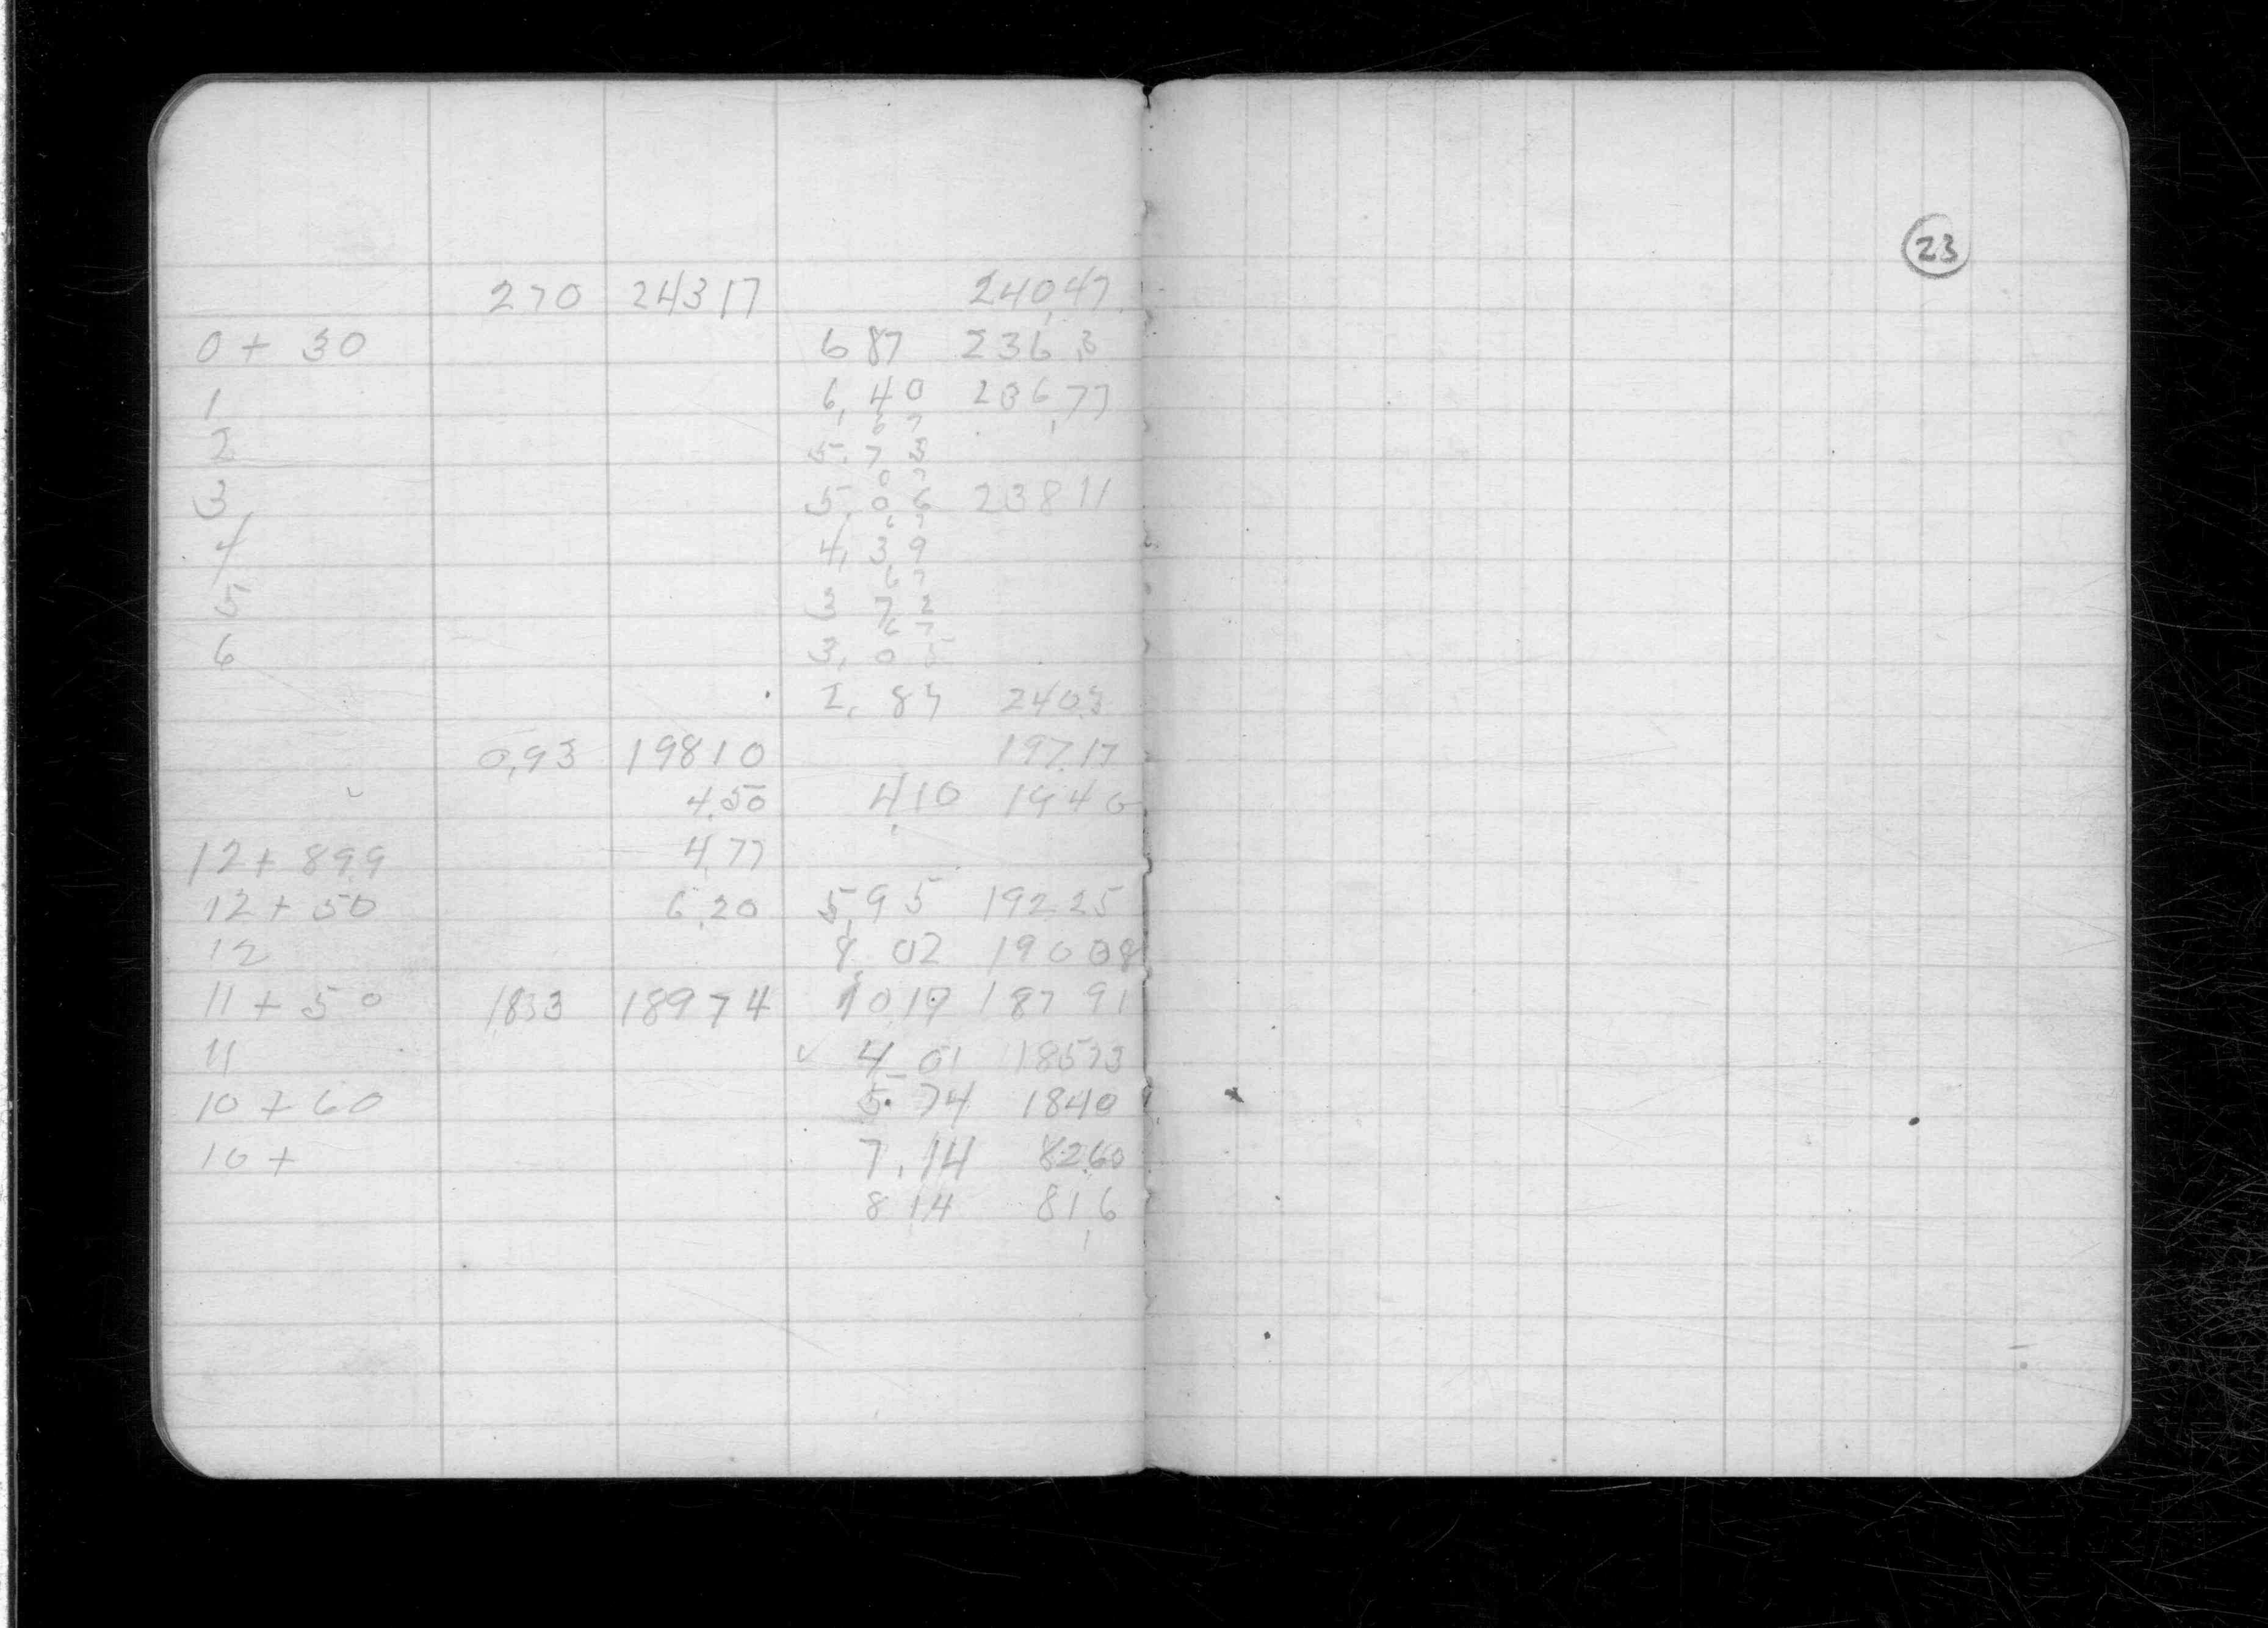 23
270 24317 240,47
0 + 30 6 87 236,3
1 6,40 236,77
67
2 5,73
67
3 5,06 23811
67
4 4,39
67
5 3 72
67
6 3,05
240.3
0,93 19810 197.17
4.50 4,10 194 0
12 + 89.9 4.77
12 + 50 6.20 5,95 192.25
12 02 190 08
11 + 50 1833 18974 10 19 187 91
11 ✓ 4 01 18573
10 + 60 5.74 1840
10 + 7.14 8260
8 14 81,6